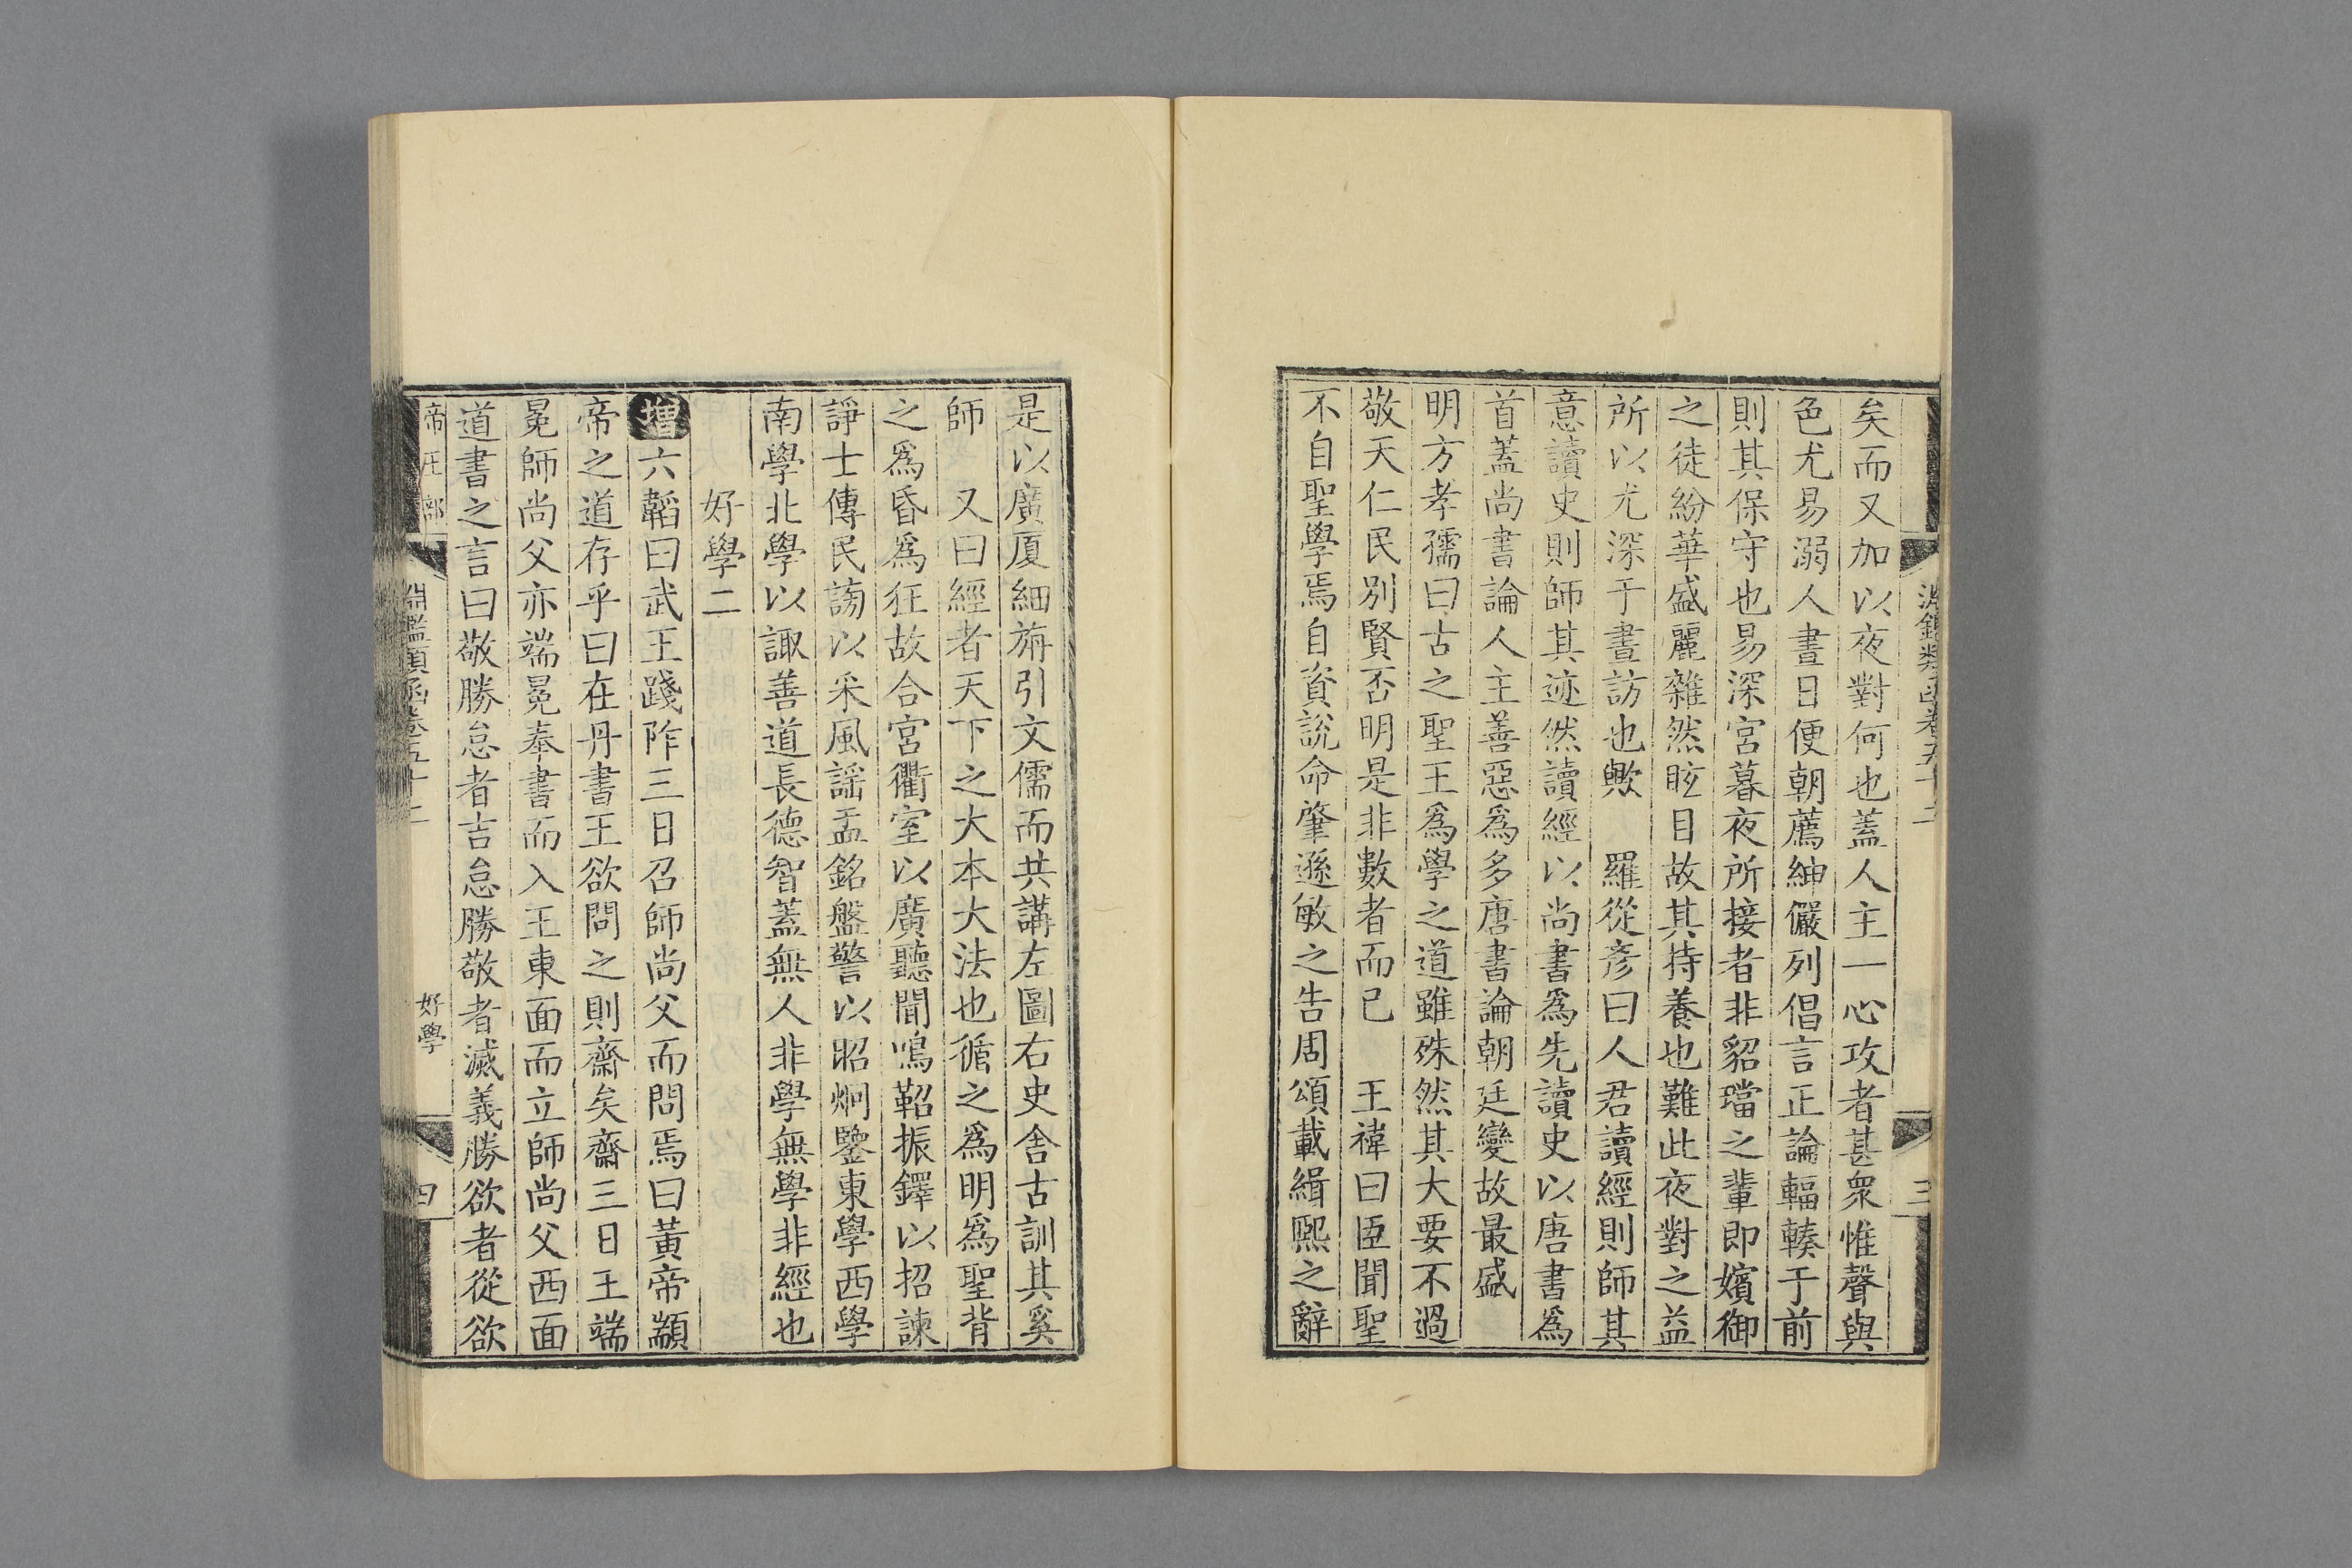 淵鑑類函卷五十二
三
矣而又加以夜對何也蓋人主一心攻者甚衆惟聲與
色尤易溺人晝日便朝薦紳儼列倡言正論輻輳于前
則其保守也易深宮暮夜所接者非貂璫之輩即嬪御
之徒紛華盛麗雜然眩目故其持養也難此夜對之益
所以尤深于晝訪也歟　羅從彥曰人君讀經則師其
意讀史則師其迹然讀經以尚書爲先讀史以唐書爲
首蓋尚書論人主善惡爲多唐書論朝廷變故最盛
明方孝孺曰古之聖王爲學之道雖殊然其大要不過
敬天仁民別賢否明是非數者而已　王禕曰臣聞聖
不自聖學焉自資說命肇遜敏之告周頌載緝熙之辭
是以廣厦細旃引文儒而共講左圖右史舍古訓其奚
師　又曰經者天下之大本大法也循之爲明爲聖背
之爲昏爲狂故合宮衢室以廣聽聞鳴鞀振鐸以招諫
諍士傳民謗以采風謡盂銘盤警以昭炯鑒東學西學
南學北學以諏善道長德智蓋無人非學無學非經也
好學二
增六韜曰武王踐阼三日召師尚父而問焉曰黃帝顓
帝之道存乎曰在丹書王欲問之則齋矣齋三日王端
冕師尚父亦端冕奉書而入王東面而立師尚父西面
道書之言曰敬勝怠者吉怠勝敬者滅義勝欲者從欲
帝王部
淵鑑類函卷五十二
好學
四